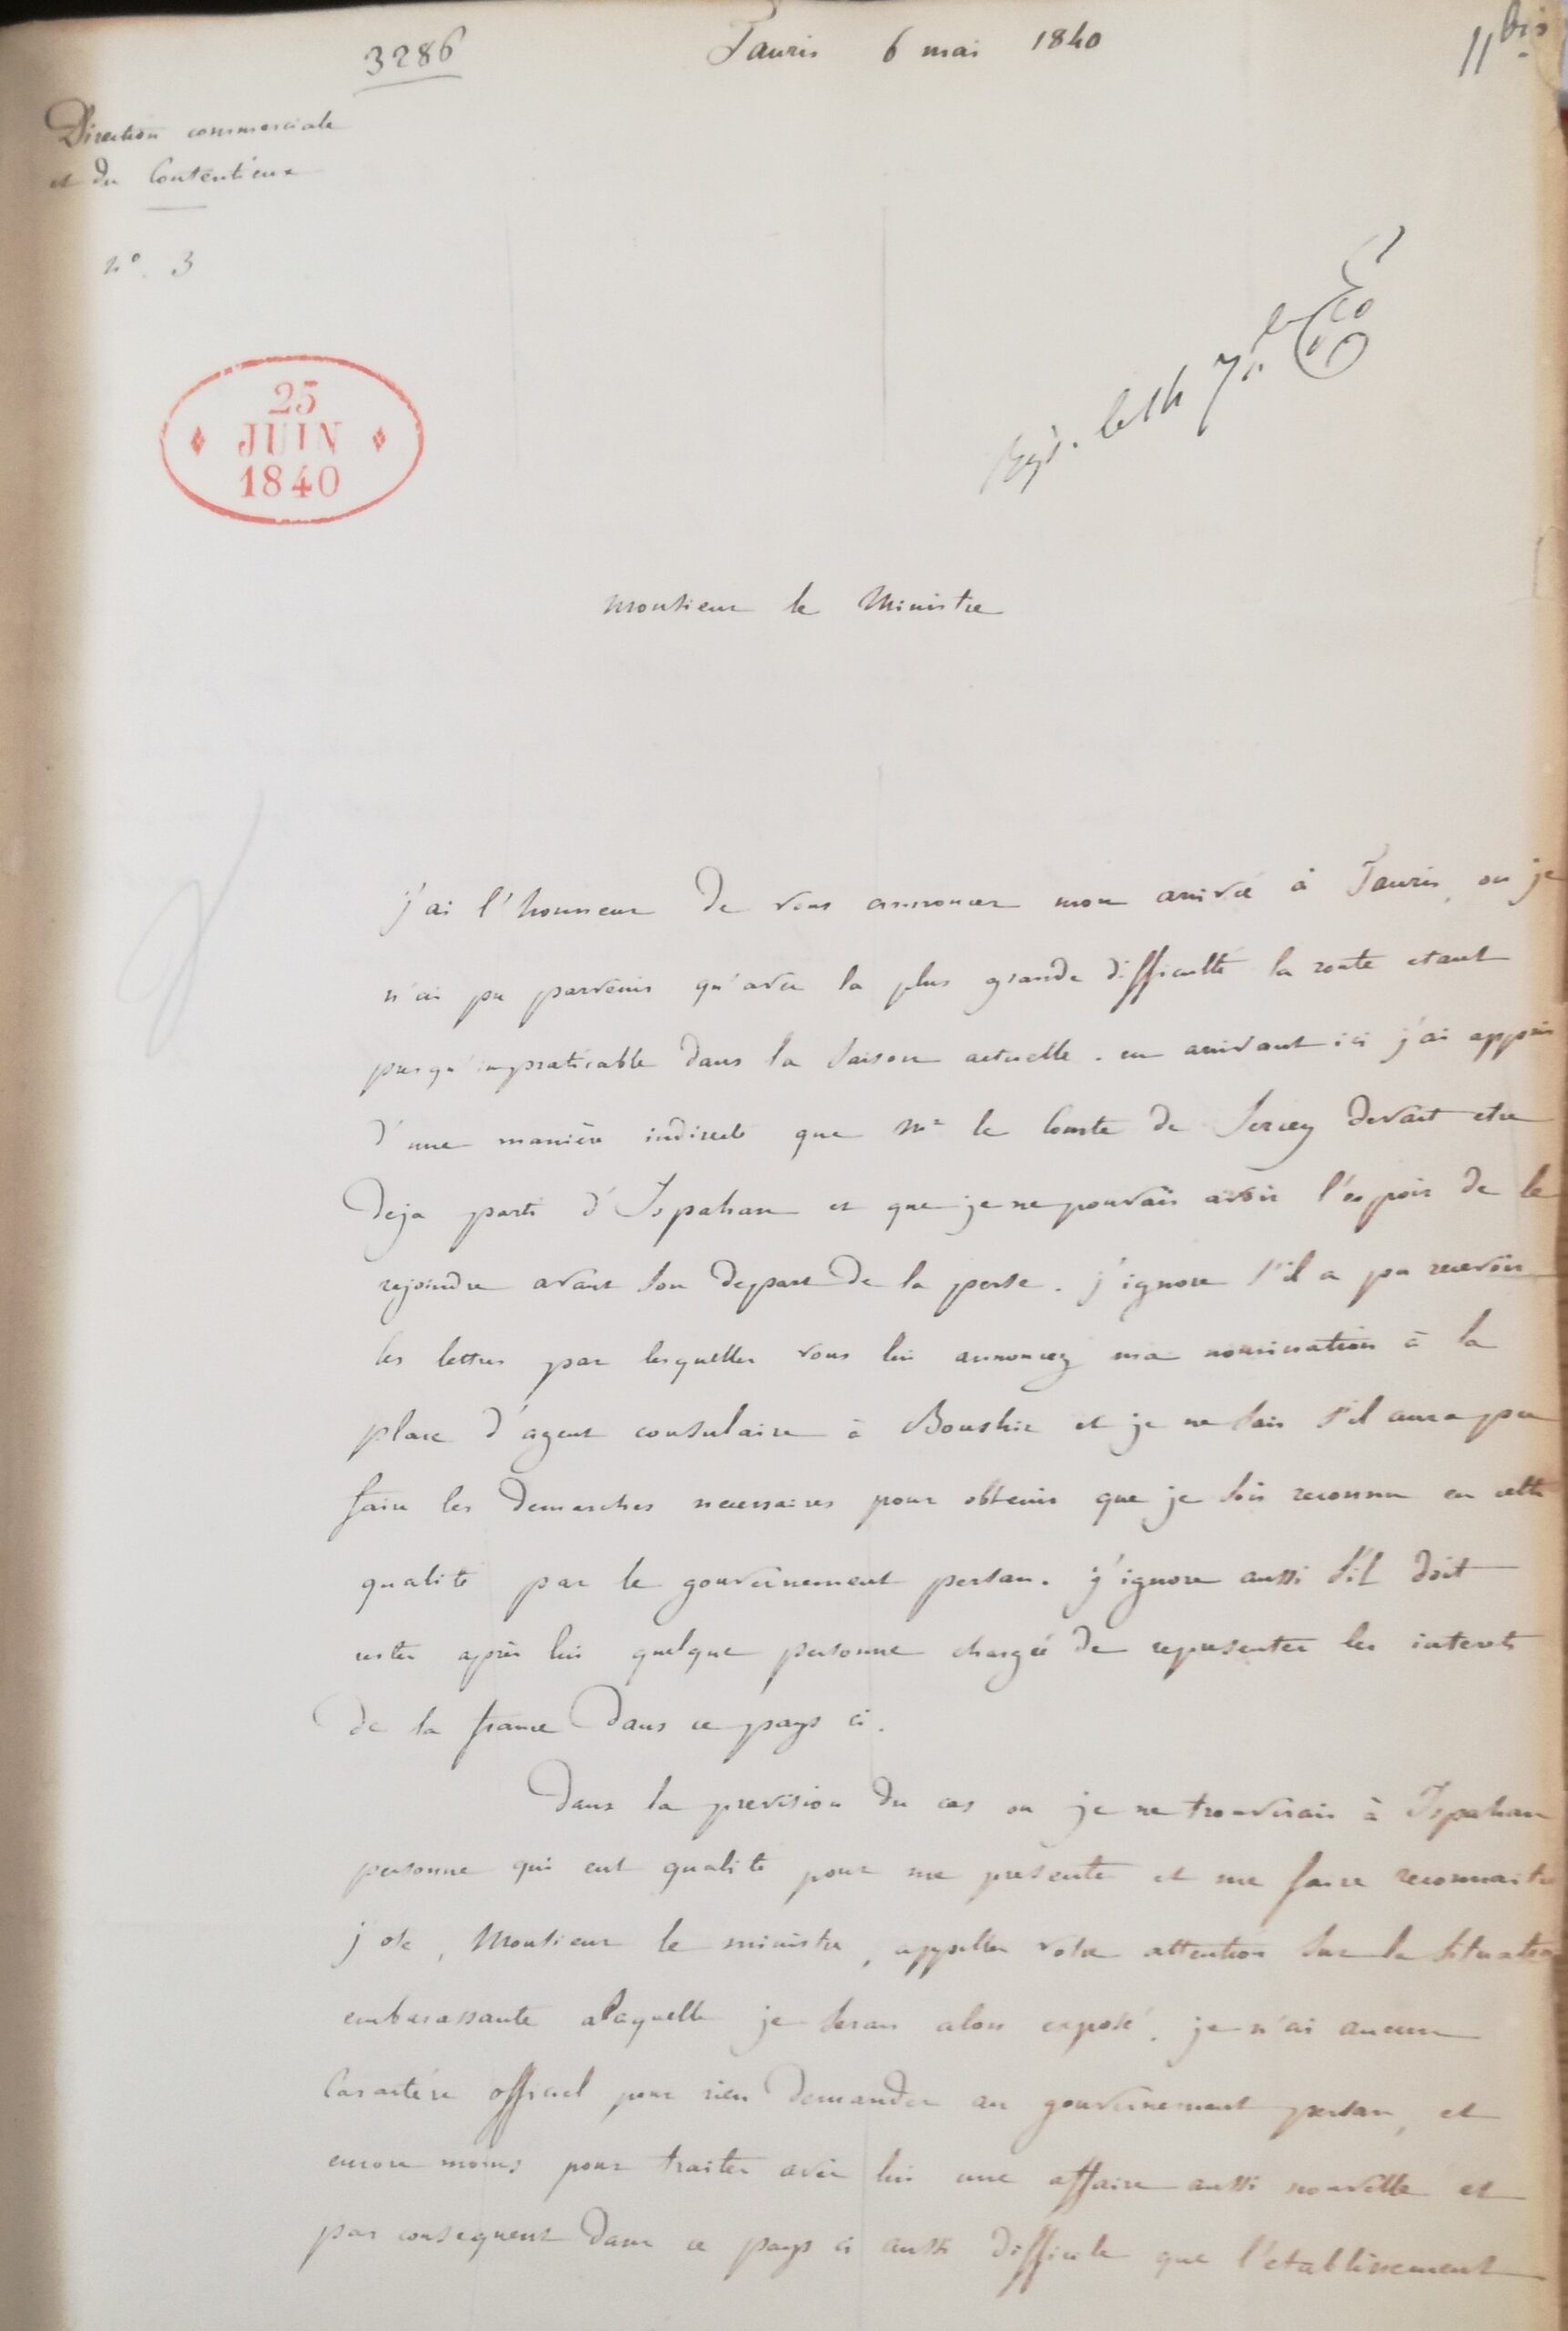 3286
Tauris 6 mai 1840
11 bis
Direction commerciale
et du Contentieux
n° 3
le 14 7bre
25
JUIN
1840
Monsieur le Ministre
j'ai l'honneur de vous annoncer mon arrivé à Tauris, ou je
n'ai pu parvenir qu'avec la plus grande difficulté la route etant
presqu'impraticable dans la saison actuelle. en arrivant ici j'ai appris
d'une manière indirecte que Mr le Comte de Sercey devait etre
deja parti d'Ispahan et que je ne pouvais avoir l'espoir de le
rejoindre avant son depart de la perse. j'ignore s'il a pu recevoir
les lettres par lesquelles vous lui annoncez ma nomination à la
place d'agent consulaire à Boushir et je ne sais s'il aura pu
faire les demarches necessaires pour obtenir que je sois reconnu en cette
qualité par le gouvernement persan. j'ignore aussi s'il doit
rester après lui quelque personne chargée de representer les interets
de la france dans ce pays ci.
Dans la prevision du cas ou je ne trouverais à Ispahan
personne qui eut qualité pour me presenter et me faire reconnaitre
j'ose, Monsieur le ministre, appeller votre attention sur la situation
embarassante alaquelle je serais alors exposé. je n'ai aucun
Caractère officiel pour rien demander au gouvernement persan, et
encore moins pour traiter avec lui une affaire aussi nouvelle et
par consequent dans ce pays ci aussi difficile que l'etablissement